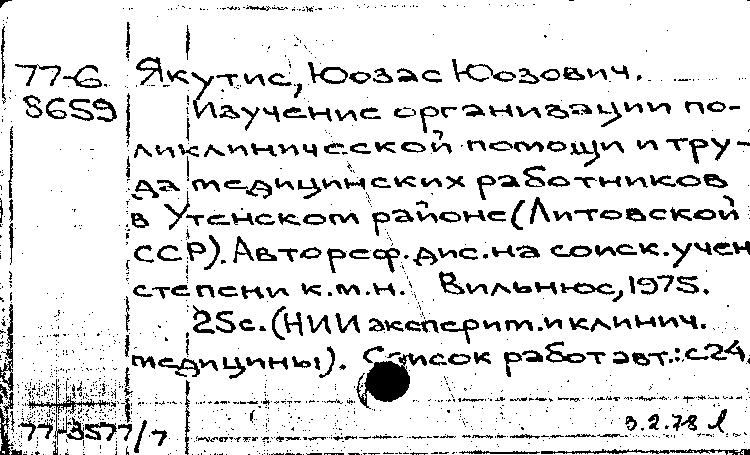 77-6 Якутис, Юозас Юозович.
8659 Изучение организации по-
ликлинической помощи и тру-
да медицинских работников
в Утенском районе (Литовской
ССР). Автореф. дис. на соиск. учен
степени к.м.н. Вильнюс, 1975.
25с. (НИИ эксперим. и клинич.
медицины). Список работ авт.: с24.
77-3577/7 3.2.78